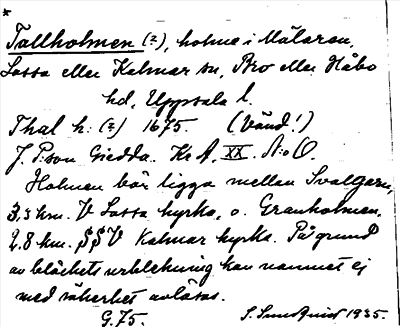 *
Tallholmen (?), holme i Mälaren,
Låssa eller Kalmar sn, Bro eller Håbo
hd, Uppsala l.
Thal h: (?) 1675. (Vänd!)
J. P:son Giedda. Kr A. XX. N:o O.
Holmen bör ligga mellan Svalgarn,
3,5 km. V Låssa kyrka, o. Granholmen,
2,8 km. SSV Kalmar kyrka. På grund
av bläckets urblekning kan namnet ej
med säkerhet avläsas.
G. 75. S. Sundquist 1935.